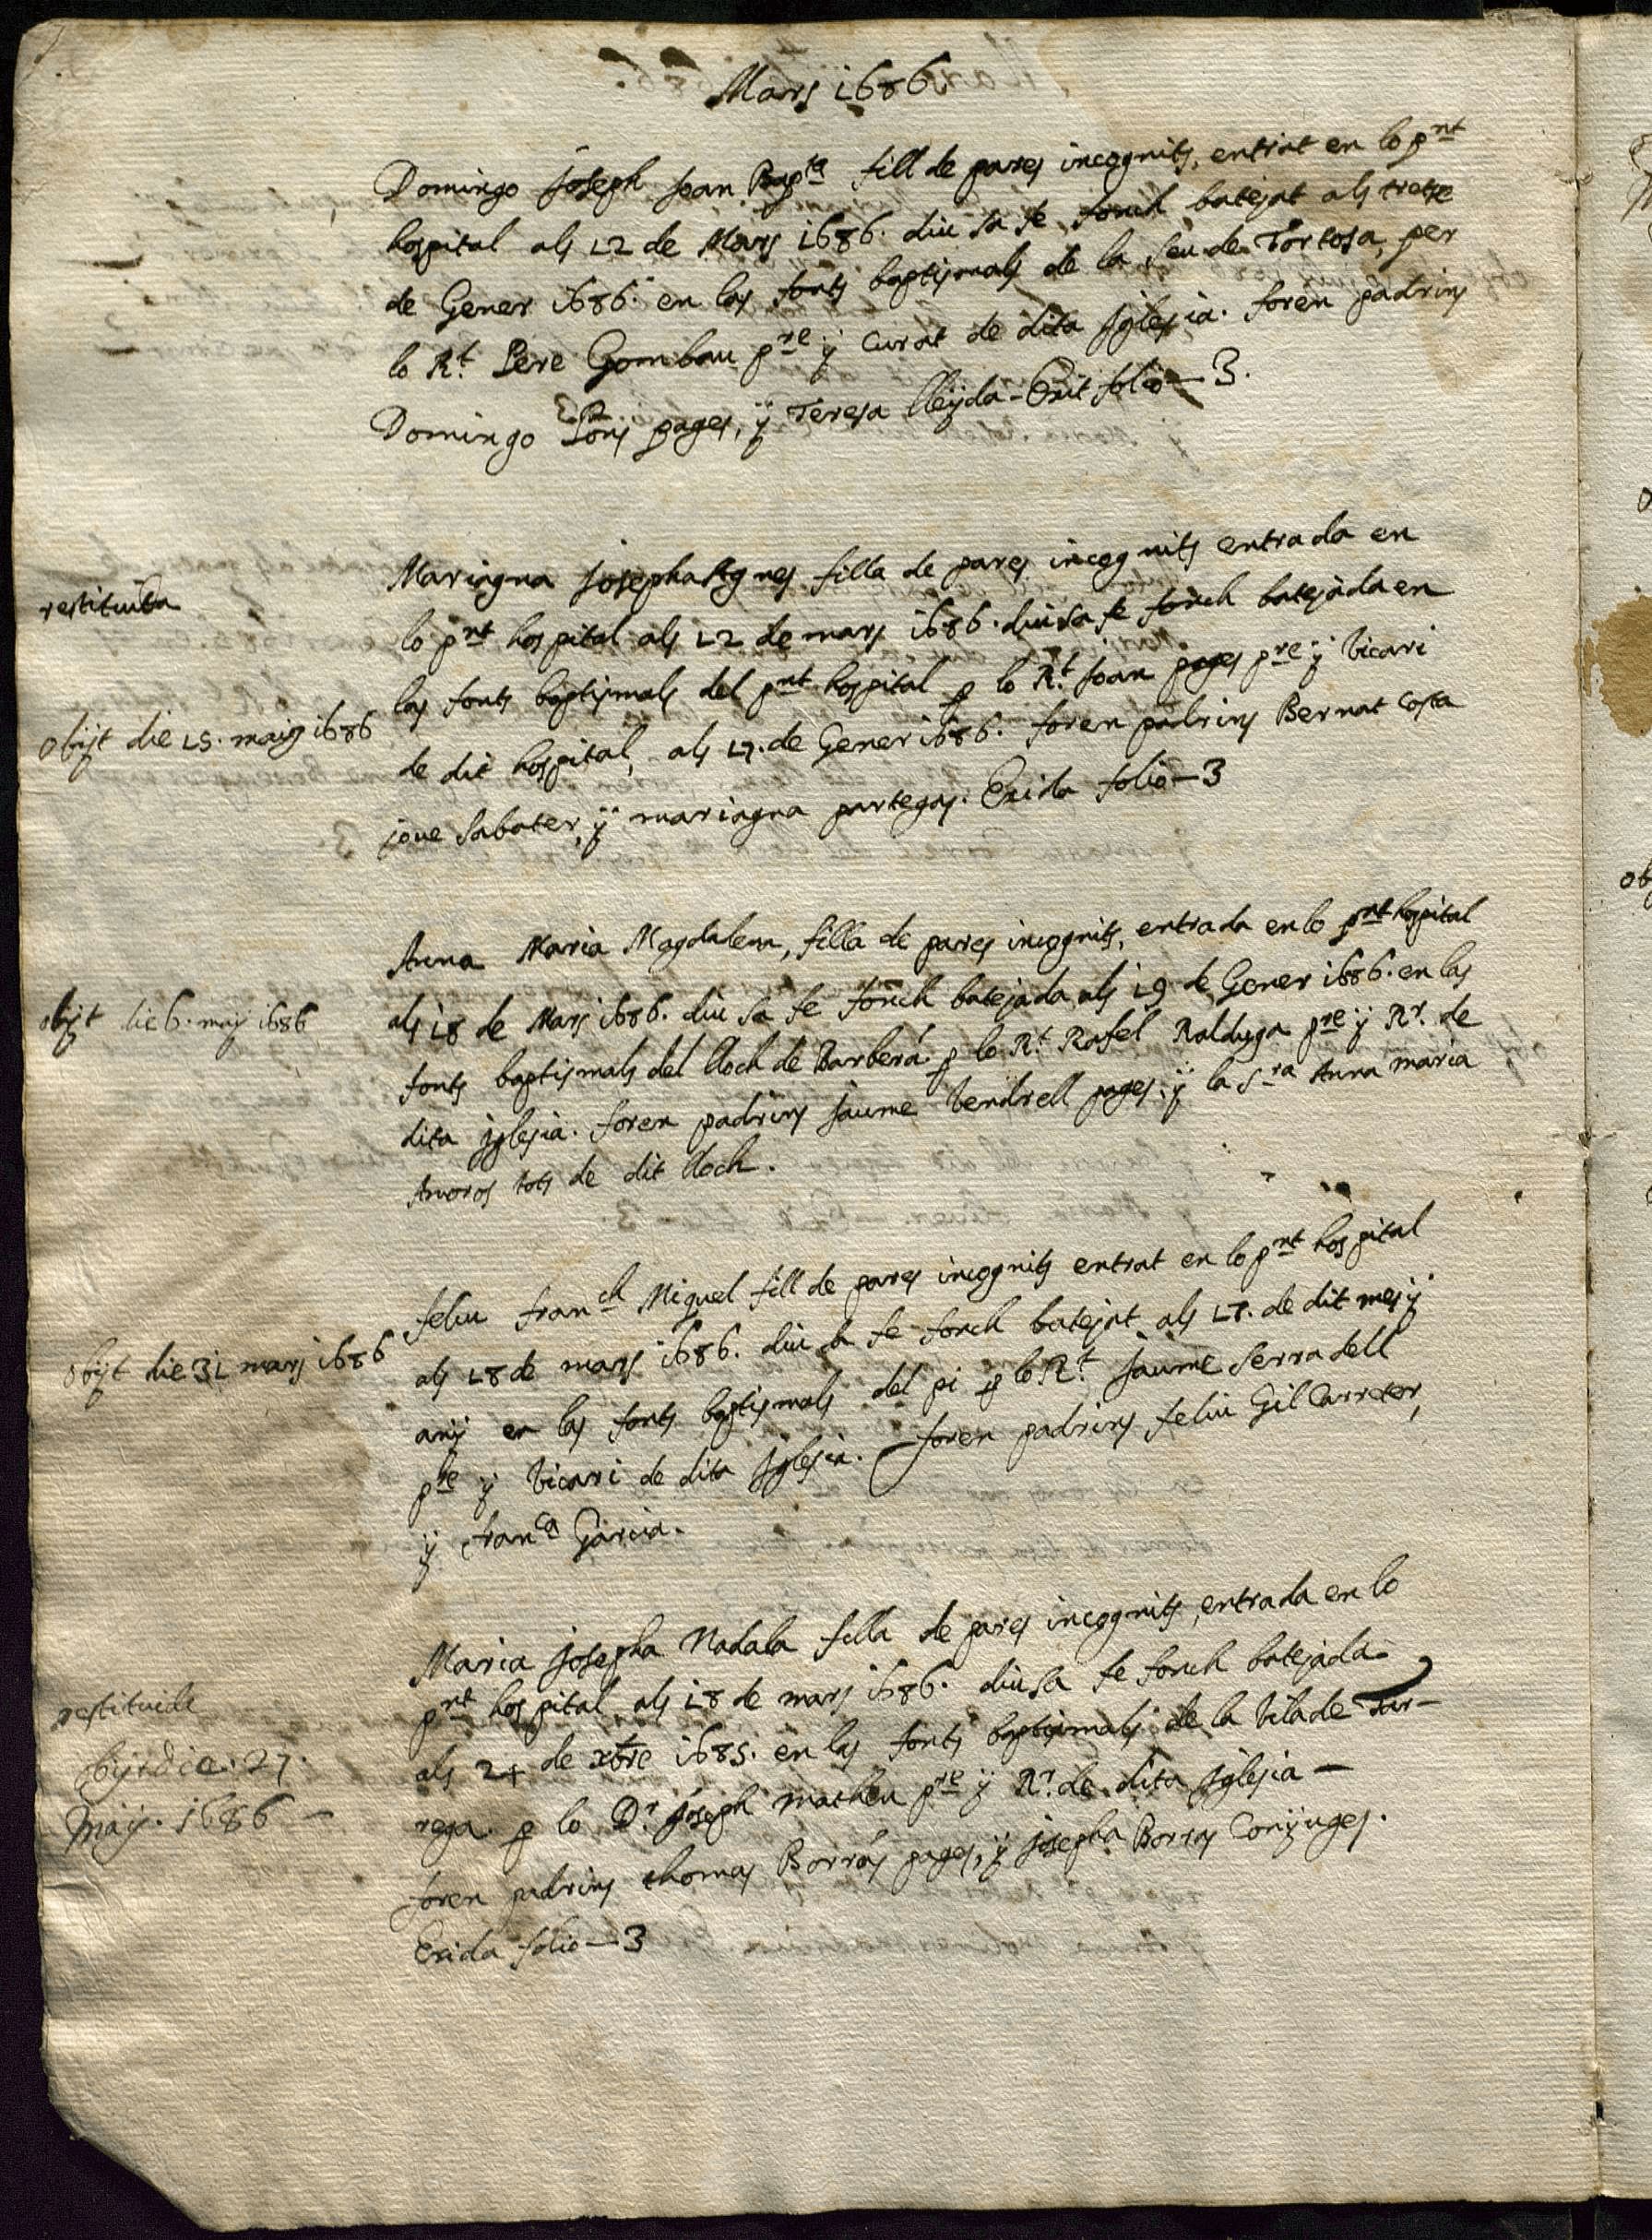 Mars 1686
Domingo Joseph Joan Bapta fill de pares incognits, entrat en lo pnt
hospital als 12 de Mars 1686. diu sa fe fonch batejat als tretse
de Gener 1686. en las fonts baptismals de la Seu de Tortosa, per
lo Rt. Pere Gombau pre y curat de dita Iglesia. foren padrins
Domingo Pons pages, ÿ Teresa lleÿda - Exit folio — 3.
restituida
Mariagna Josepha Agnes filla de pares incognits entrada en
lo pnt hospital als 12 de mars 1686. diu sa fe fonch batejada en
las fonts baptismals del pnt hospital p lo Rt. Joan pages pre ÿ Vicari
obijt die 15. maig 1686
de dit hospital, als 17. de Gener 1686. foren padrins Bernat Costa
jove sabater, ÿ mariagna partegas. Exida folio — 3
Anna Maria Magdalena, filla de pares incognits, entrada en lo pnt hospital
obijt die 6. maij 1686
als 18 de Mars 1686. diu sa fe fonch batejada als 19 de Gener 1686. en las
fonts baptismals del lloch de Barberá p lo Rt. Rafel Ralduga pre ÿ Rr. de
dita Iglesia. foren padrins Jaume Vendrell pages, ÿ la Sra Anna maria
Amoros tots de dit lloch.
feliu Franch Miquel fill de pares incognits entrat en lo pnt hospital
obijt die 31 mars 1686
als 18 de mars 1686. diu sa fe fonch batejat als 17. de dit mes ÿ
anÿ en las fonts baptismals del pi p lo Rt. Jaume Serradell
pre ÿ Vicari de dita Iglesia. foren padrins feliu Gil Carreter,
ÿ Franca Garcia.
Maria Josepha Nadala filla de pares incognits, entrada en lo
pnt hospital als 18 de mars 1686. diu sa fe fonch batejada
restituida
als 24 de xbre 1685. en las fonts baptismals de la Vila de Tar-
obijt die. 27.
maij. 1686 —
rega. p lo Dr. Joseph matheu pre ÿ Rr. de dita Iglesia —
foren padrins thomas Borrás pages, ÿ Josepha Borras Conÿuges.
Exida folio — 3